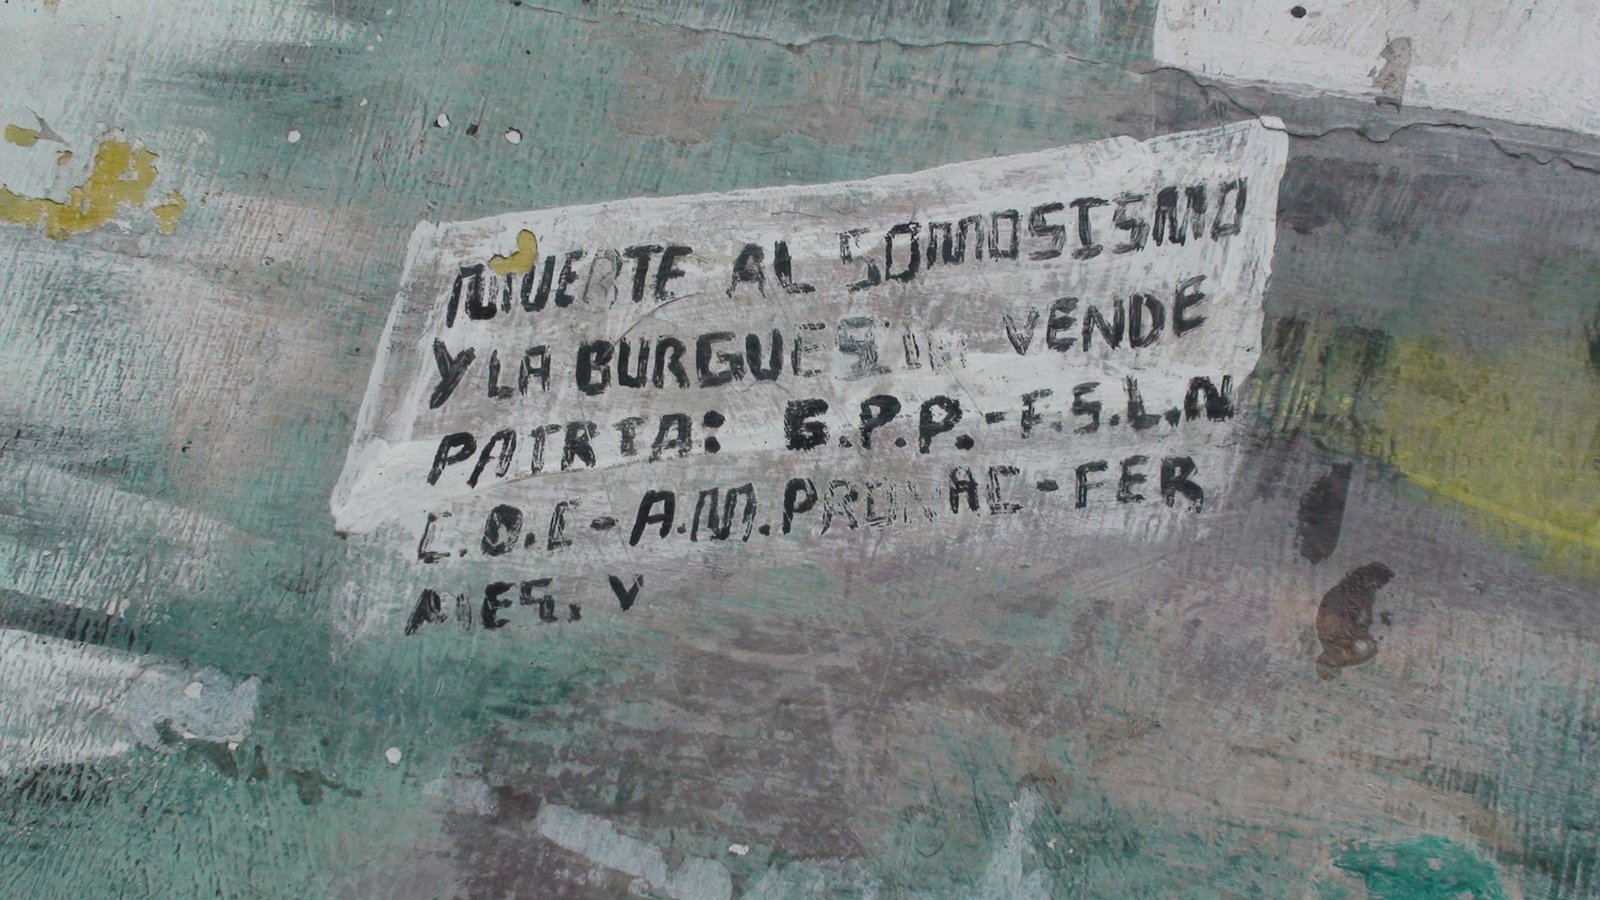 MUERTE AL SOMOSISMO
Y LA BURGUESIA VENDE
PATRIA: G.P.P.-F.S.L.N
C.O.C-A.M.PRONAC-FER
AIES. Y